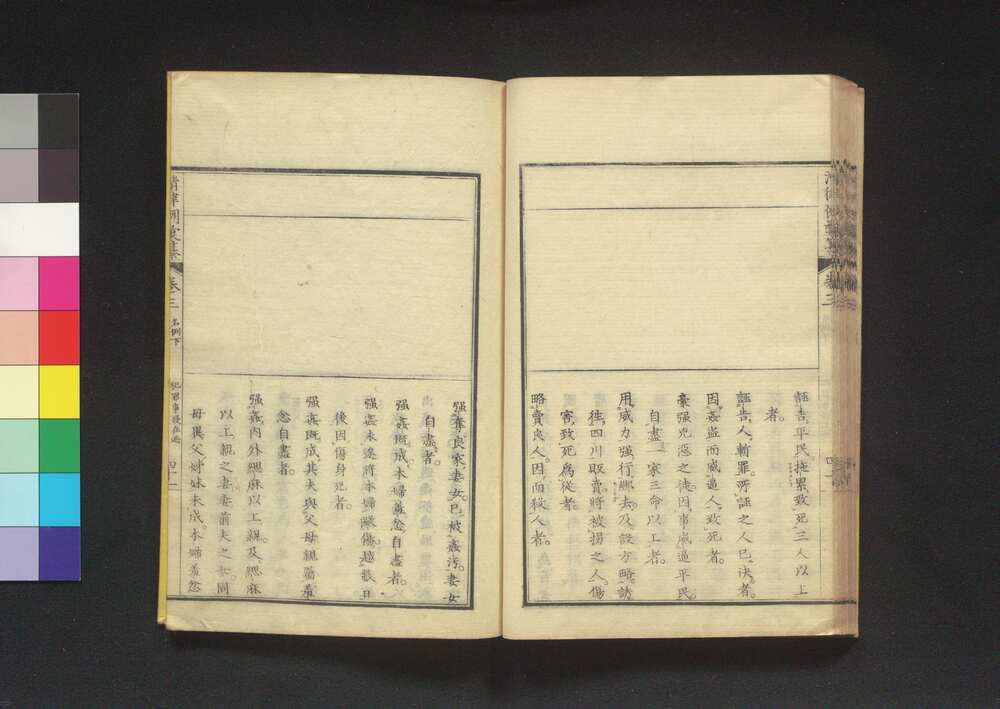 誣告平民拖累致死三人以上
者。
誣告人斬罪。所誣之人已決者。
因姦盜而威逼人致死者。
豪强兇惡之徒因事威逼平民
自盡一家三命以上者。
用威力强行綁去。及設方略誘
徃四川販賣將被拐之人傷
害致死爲從者。
略賣良人因而殺人者。
卷三
强奪良家妻女已被姦污。妻女
自盡者。
强姦既成本婦羞忿自盡者。
强姦未遂將本婦毆傷越數日
後因傷身死者。
强姦既成其夫與父母親屬羞
忿自盡者。
强姦内外緦麻以上親及緦麻
以上親之妻妻前夫之女同
母異父姉妹未成。本婦羞忿
清律例彙纂 卷三 名例下 犯罪事發在逃 四十一